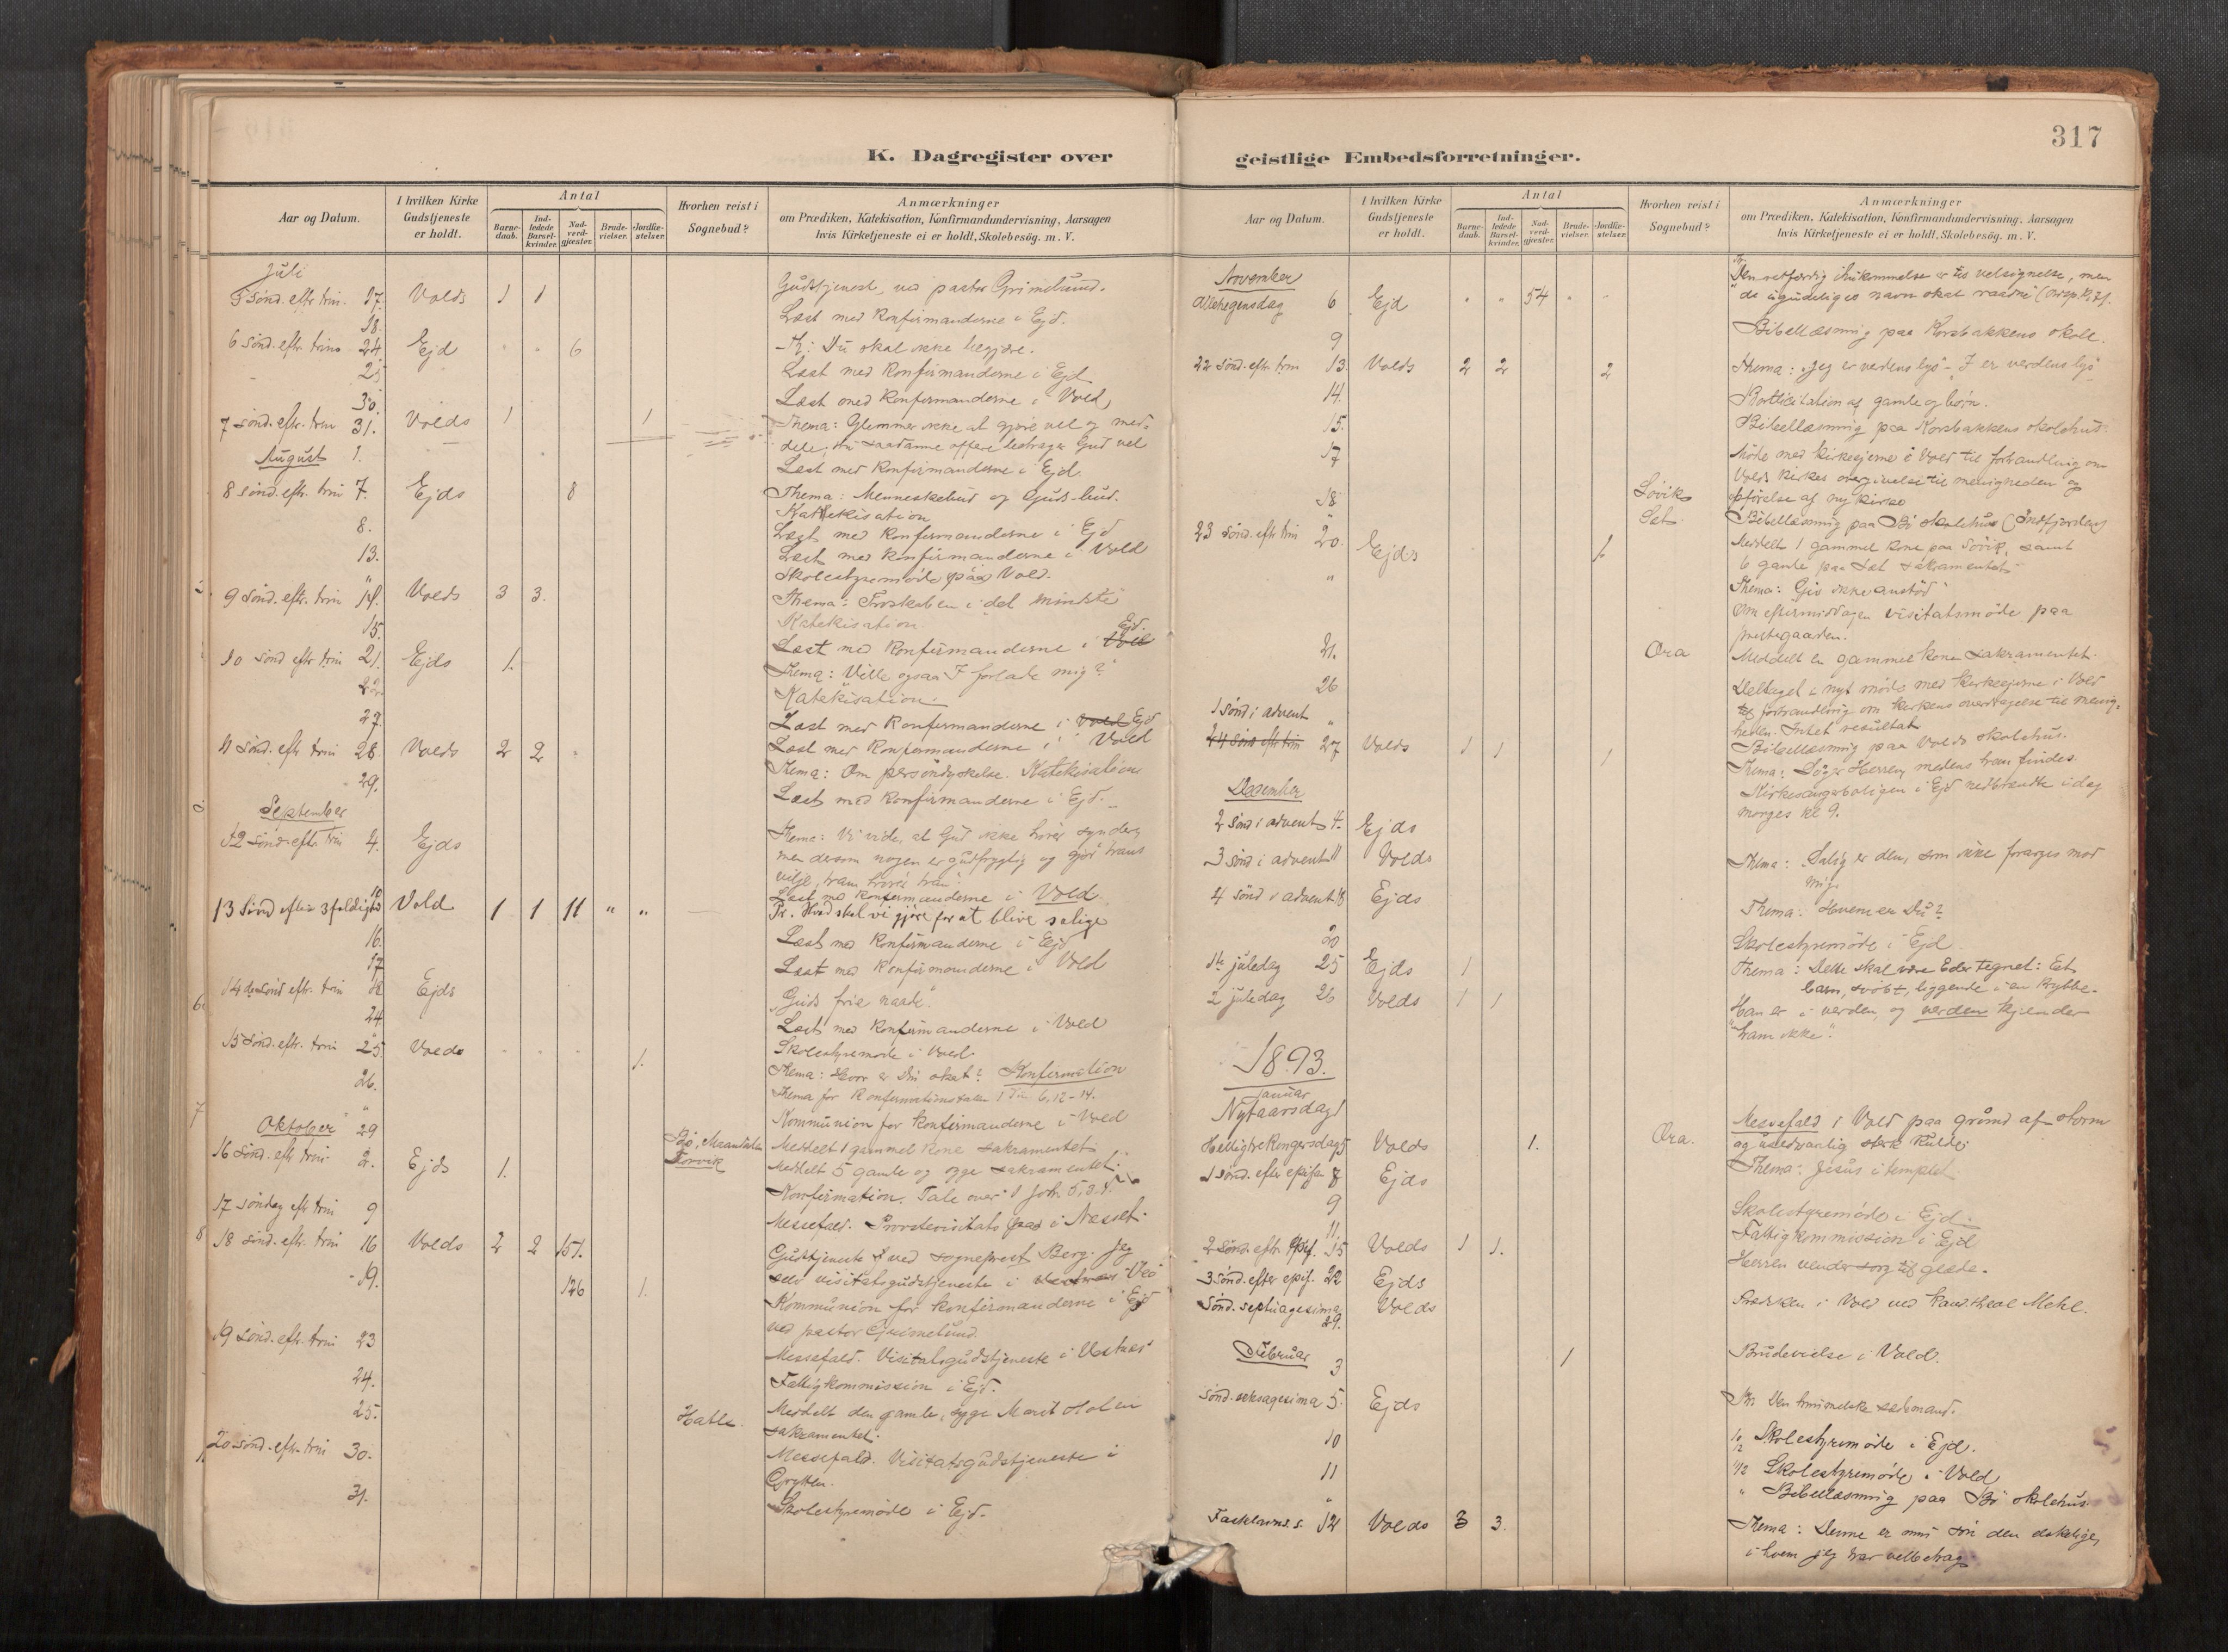 317
K. Dagregister over
geistlige Embedsforretninger.
Aar og Datum.
I hvilken Kirke Gudstjeneste er holdt.
Antal
Barne-daab.
Ind-ledede Barsel-kvinder.
Nad-verd-gjester.
Brude-vielser.
Jordfæ-stelser.
Hvorhen reist i Sognebud?
Anmærkninger
om Prædiken, Katekisation, Konfirmandundervisning, Aarsagen
hvis Kirketjeneste ei er holdt, Skolebesög. m. V.
Juli
5 Sønd. eftr trin. 17. Volds 1 1 Gudstjeneste, ved pastor Grimelund.
18. Læst med Konfirmanderne i Ejd.
6 Sønd. eftr. trin. 24. Ejd " " 6 Th: Du skal ikke begjære.
25 Læst med Konfirmanderne i Ejd
30. Læst med Konfirmanderne i Vold
7 Sønd. eftr. trin 31. Volds 1 1 Thema: Glemmer ikke at gjøre vel og med=
dele, thi saadanne offere behager Gud vel
August 1. Læst med Konfirmanderne i Ejd.
8 sønd. eftr. trin 7. Ejds 8 Thema: Menneskebud og Guds bud.
Katekisation
8. Læst med Konfirmanderne i Ejd
13. Læst med Konfirmanderne i Vold
" Skolestyremøde paa Vold.
9 Sønd. eftr. trin 14. Volds 3 3. Thema: Troskaben i det mindste
Katekisation.
15. Læst med Konfirmanderne i Vold Ejd.
10 Sønd eftr trin 21. Ejds 1. Thema: Ville ogsaa I forlade mig?
Katekisation.
22. Læst med Konfirmanderne i Vold Ejd
27. Læst med Konfirmanderne i Vold
11 Sønd. eftr trin 28. Volds 2 2 " Thema: Om persondyrkelse. Katekisation
29. Læst med Konfirmanderne i Ejd.
September
12 Sønd. eftr. trin 4. Ejds Thema: Vi vide, at Gud ikke hører syndere,
men dersom nogen er gudfrygtig og gjør hans
vilje, ham hører han.
10 Læst med Konfirmanderne i Vold.
13 Sønd efter 3foldighd Vold 1 1 11 " " Pr. Hvad skal vi gjøre for at blive salige
16. Læst med Konfirmanderne i Ejd
17 Læst med Konfirmanderne i Vold
14 den Sønd eftr. trin 18 Ejds "Guds frie naade."
24 Læst med Konfirmanderne i Vold
" Skolestyremøde i Vold.
15 Sønd. eftr. trin 25. Volds 1. Thema: Hvor er Din skat? Konfirmation
Thema for Konfirmationstalen 1 Tim 6, 12-14.
26. Kommunion for Konfirmanderne i Vold
" Bø, Maandalen Meddelt 1 gammel kone sakramentet
Oktober 29 Torvik Meddelt 5 gamle og syge sakramentet.
16 Sønd. eftr trin 2. Ejds 1. Konfirmation. Tale over 1 Joh. 5, 3-4.
17 søndag eftr trin 9 Messefald. Provstevisitats i Nesset.
18 Sønd. eftr. trin 16 Volds 2 2 157. Gudstjeneste ved sogneprest Berg. Jeg
selv visitatsgudstjeneste i Veø
19. 126 1. Kommunion for Konfirmanderne i Ejd
ved pastor Grimelund.
19 sønd. eftr. trin 23 Messefald. Visitatsgudstjeneste i Vestnes
24. Fattigkommission i Ejd.
25. Hatle. Meddelt den gamle, syge Marit Holen
sakramentet.
20 Sønd. eftr trin 30. Messefald. Visitatsgudstjeneste i
Grytten.
31. Skolestyremøde i Ejd.
Aar og Datum.
I hvilken Kirke Gudstjeneste er holdt.
Antal
Barne-daab.
Ind-ledede Barsel-kvinder.
Nad-verd-gjester.
Brude-vielser.
Jordfæ-stelser.
Hvorhen reist i Sognebud?
Anmærkninger
om Prædiken, Katekisation, Konfirmandundervisning, Aarsagen
hvis Kirketjeneste ei er holdt, Skolebesög. m. V.
November
Allehelgensdag 6 Ejd " " 54 " " Den retfærdig ihukommelse er til velsignelse, men
de ugudeliges navn skal raadne
9 Bibellæsning paa Korsbakkens skole.
22 Sønd. eftr. trin 13. Volds 2 2 2 Thema: Jeg er verdens lys - I er verdens lys
14. Bortlicitation af gamle og børn.
15. Bibellæsning paa Korsbakkens skolehus.
17 Møde med Kirkeejerne i Vold til forhandling om
Volds Kirkes overgivelse til menigheden og
opførelse af ny kirke
18 Bibellæsning paa Bø Skolehus (Indfjorden)
" Løvik Meddelt 1 gammel kone paa Løvik, samt
Set. 6 gamle paa Set sakramentet
23 Sønd. eftr trin 20. Ejds 1. Thema: Giv ikke anstød
" Om eftermiddagen visitatsmøde paa
prestegaarden.
21. Øra Meddelt en gammel kone sakramentet.
26 Deltaget i nyt møde med Kirkeejerne i Vold
til forhandling om kirkens overdragelse til menig=
heden. Intet resultat
" Bibellæsning paa Volds skolehus.
1 Sønd i advent
24 Sønd eftr trin 27 Volds 1 1 1 Thema: Søger Herren, medens han findes.
Kirkesangerboligen i Ejd nedbrændte idag
morges kl 9.
December
2 Sønd i advent 4. Ejds
3 Sønd i advent 11 Volds Thema: Salig er den, som ikke forarges mod
mig.
4 Sønd i advent 18 Ejds Thema: Hvem er Du?
20 Skolestyremøde i Ejd
1ste juledag 25 Ejds 1 Thema: Dette skal være Eder tegnet: Et
barn, svøbt, liggende i en krybbe.
2 juledag 26 Volds 1 1 Han er i verden, og verden kjender
ham ikke."
1893.
Januar
Nytaarsdag 1 Messefald i Vold paa grund af storm
og usædvanlig sterk kulde.
Helligtrekongersdag 5 Volds 1. Øra.
1 Sønd. efter epifan 8 Ejds Thema: Jesus i templet
9 Skolestyremøde i Ejd.
11. Fattigkommission i Ejd
2 Sønd. eftr. Epif. 15 Volds 1 1. Herren vender sorg til glæde.
3 Sønd. efter epif. 22 Ejds
Sønd. septuagesima 29. Volds Prædiken i Vold ved kand. theol Mehl.
Februar 3 1 Brudevielse i Vold.
Sønd. seksagesima 5. Ejds
10 10/2 Skolestyremøde i Ejd.
11 11/2 Skolestyremøde i Vold
" " Bibellæsning paa Bø skolehus
Fastelavns s. 12 Volds 3 3. Thema: Denne er min søn den elskelige,
i hvem jeg har velbehag